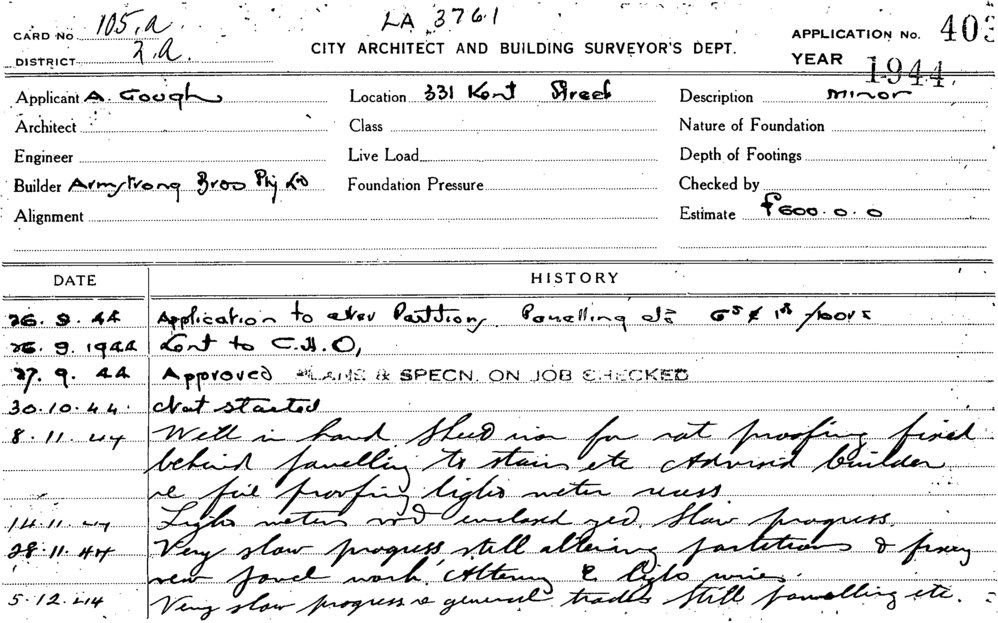 LA 3761
CARD No 105.a
CITY ARCHITECT AND BUILDING SURVEYOR'S DEPT.
APPLICATION No. 403
DISTRICT 2.a.
YEAR 1944
Applicant A. Gough Location 331 Kent Street Description minor
Architect Class Nature of Foundation
Engineer Live Load Depth of Footings
Builder Armstrong Bros Pty Ld Foundation Pressure Checked by
Alignment Estimate £600.0.0
DATE HISTORY
26.9.44 Application to alter Partitions, Panelling etc Gd & 1st floors
26.9.1944 Sent to C.H.O,
27.9.44 Approved PLANS & SPECN. ON JOB CHECKED
30.10.44. Not started
8.11.44 Well in hand. Sheet iron for rat proofing fixed
behind panelling to stairs etc Advised builder
re fire proofing light meter recess.
14.11.44 Light meters not enclosed yet. Slow progress.
28.11.44 Very slow progress, still altering partitions & fixing
new panel work. Altering E light wires.
5.12.44 Very slow progress re general trades Still panelling etc.